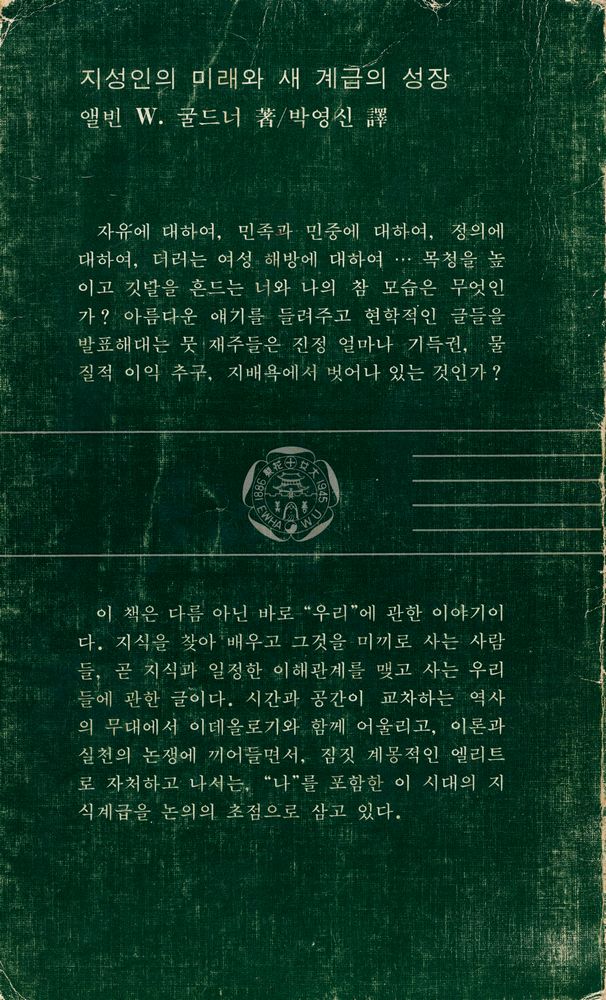 지성인의 미래와 새 계급의 성장
앨빈 W. 굴드너 著/박영신 譯
자유에 대하여, 민족과 민중에 대하여, 정의에
대하여, 더러는 여성 해방에 대하여 … 목청을 높
이고 깃발을 흔드는 너와 나의 참 모습은 무엇인
가? 아름다운 얘기를 들려주고 현학적인 글들을
발표해대는 뭇 재주들은 진정 얼마나 기득권, 물
질적 이익 추구, 지배욕에서 벗어나 있는 것인가?
1886 梨花 女大 1945
EWHA W U
이 책은 다름 아닌 바로 “우리”에 관한 이야기이
다. 지식을 찾아 배우고 그것을 미끼로 사는 사람
들, 곧 지식과 일정한 이해관계를 맺고 사는 우리
들에 관한 글이다. 시간과 공간이 교차하는 역사
의 무대에서 이데올로기와 함께 어울리고, 이론과
실천의 논쟁에 끼어들면서, 짐짓 계몽적인 엘리트
로 자처하고 나서는, “나”를 포함한 이 시대의 지
식계급을 논의의 초점으로 삼고 있다.